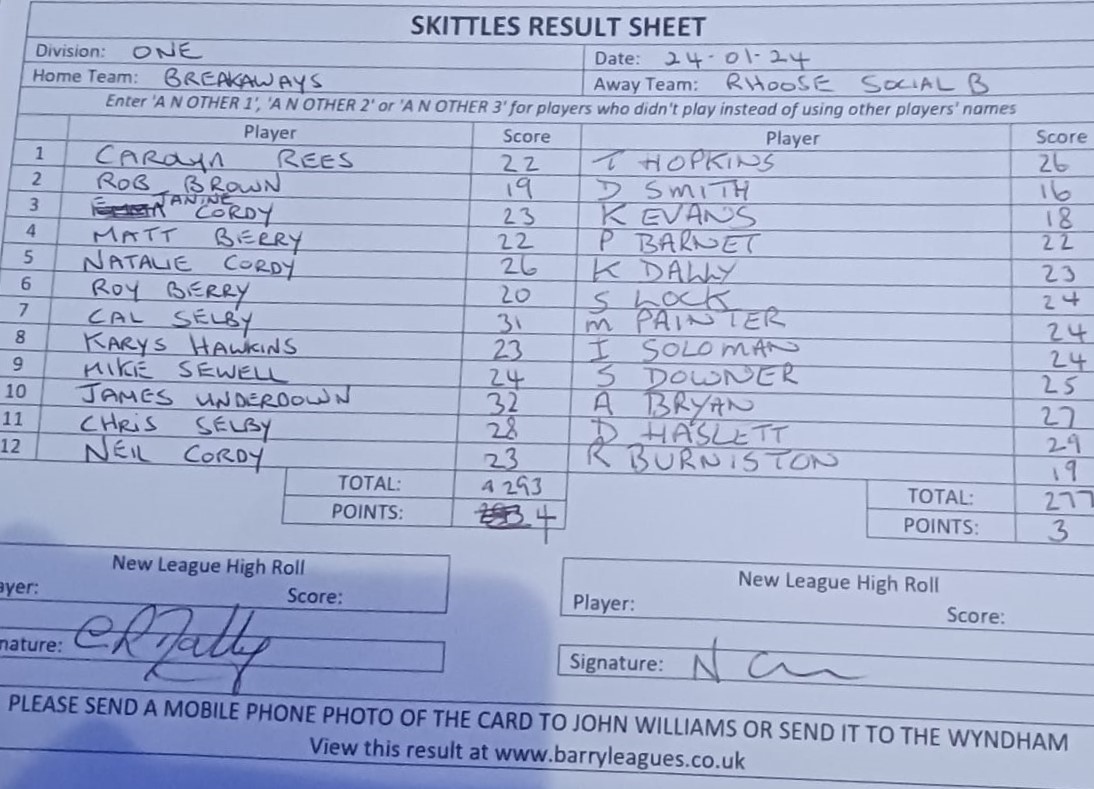 SKITTLES RESULT SHEET
Division: ONE Date: 24-01-24
Home Team: BREAKAWAYS Away Team: RHOOSE SOCIAL B
Enter 'A N OTHER 1', 'A N OTHER 2' or 'A N OTHER 3' for players who didn't play instead of using other players' names
Player Score Player Score
1 CAROLYN REES 22 T HOPKINS 26
2 ROB BROWN 19 D SMITH 16
3 JANINE CORDY 23 K EVANS 18
4 MATT BERRY 22 P BARNET 22
5 NATALIE CORDY 26 K DALLY 23
6 ROY BERRY 20 S LOCK 24
7 CAL SELBY 31 M PAINTER 24
8 KARYS HAWKINS 23 I SOLOMAN 24
9 MIKE SEWELL 24 S DOWNER 25
10 JAMES UNDERDOWN 32 A BRYAN 27
11 CHRIS SELBY 28 D HASLETT 29
12 NEIL CORDY 23 R BURNISTON 19
TOTAL: 293 TOTAL: 277
POINTS: 4 POINTS: 3
New League High Roll New League High Roll
ayer: Score: Player: Score:
nature: Signature:
PLEASE SEND A MOBILE PHONE PHOTO OF THE CARD TO JOHN WILLIAMS OR SEND IT TO THE WYNDHAM
View this result at www.barryleagues.co.uk